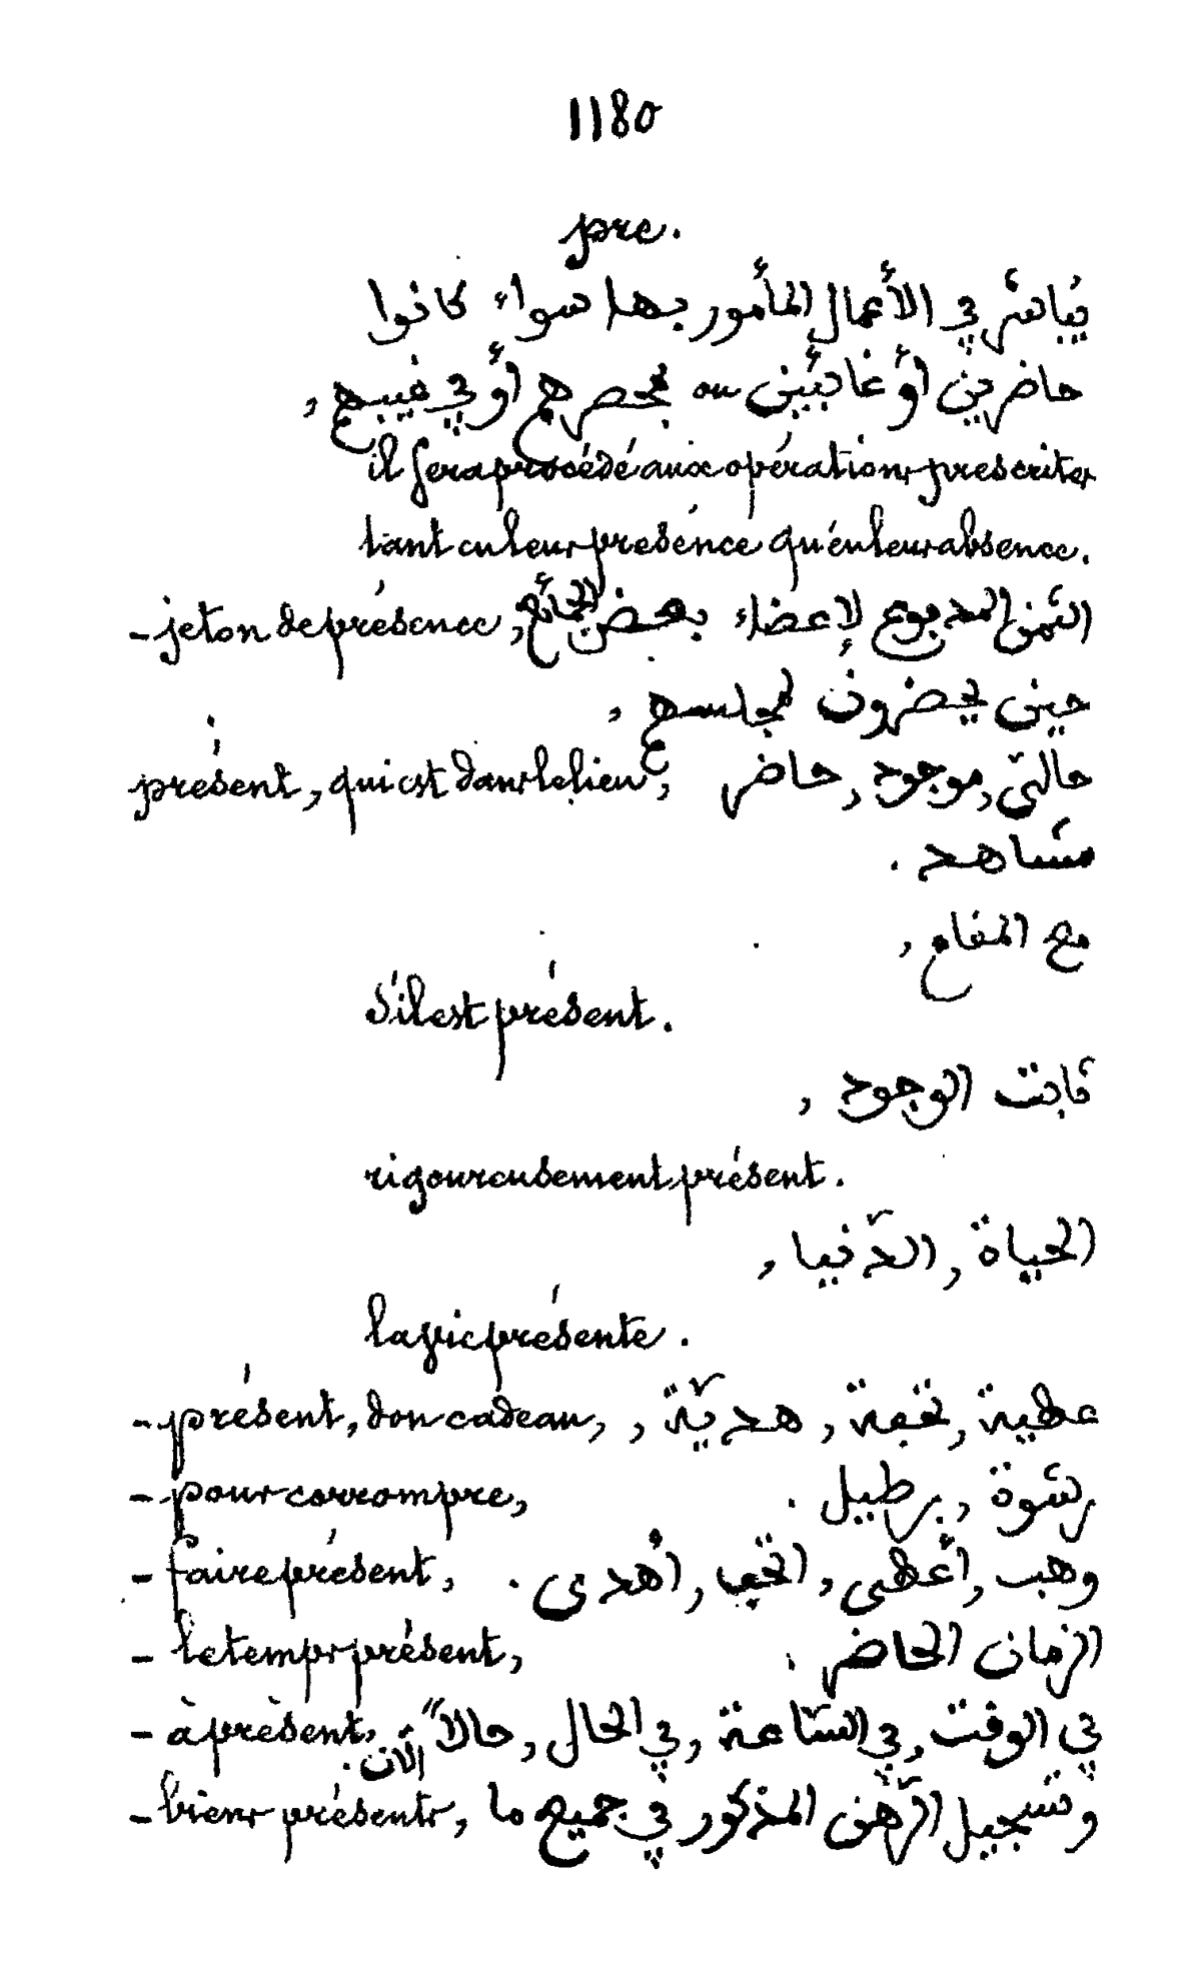 1180
pre.
يُباشَر في الأعمال المأمور بها سواء كانوا
حاضرين أو غائبين ou بمحضرهم أو في غيبتهم,
il sera procédé aux opérations prescrites
tant en leur présence qu'en leur absence.
- jeton de présence, الثمن المدفوع لإعضاء بعض المجامع
حين يحضرون لمجلسهم,
présent, qui est dans le lieu, حالّي, موجود, حاضر
مشاهد.
مع المقام,
S'il est présent.
ثابت الوجود,
rigoureusement présent.
الحياة, الدّنيا,
la vie présente.
- présent, don cadeau, عطية, تحفة, هديّة,
- pour corrompre, رشوة, برطيل.
- faire présent, وهب, أعطى, اتحف, أهدى.
- le temps présent, الزمان الحاضر.
- à présent, في الوقت, في السّاعة, في الحال, حالاً
الآن.
- biens présents, وتسجيل الرّهن المذكور في جميع ما